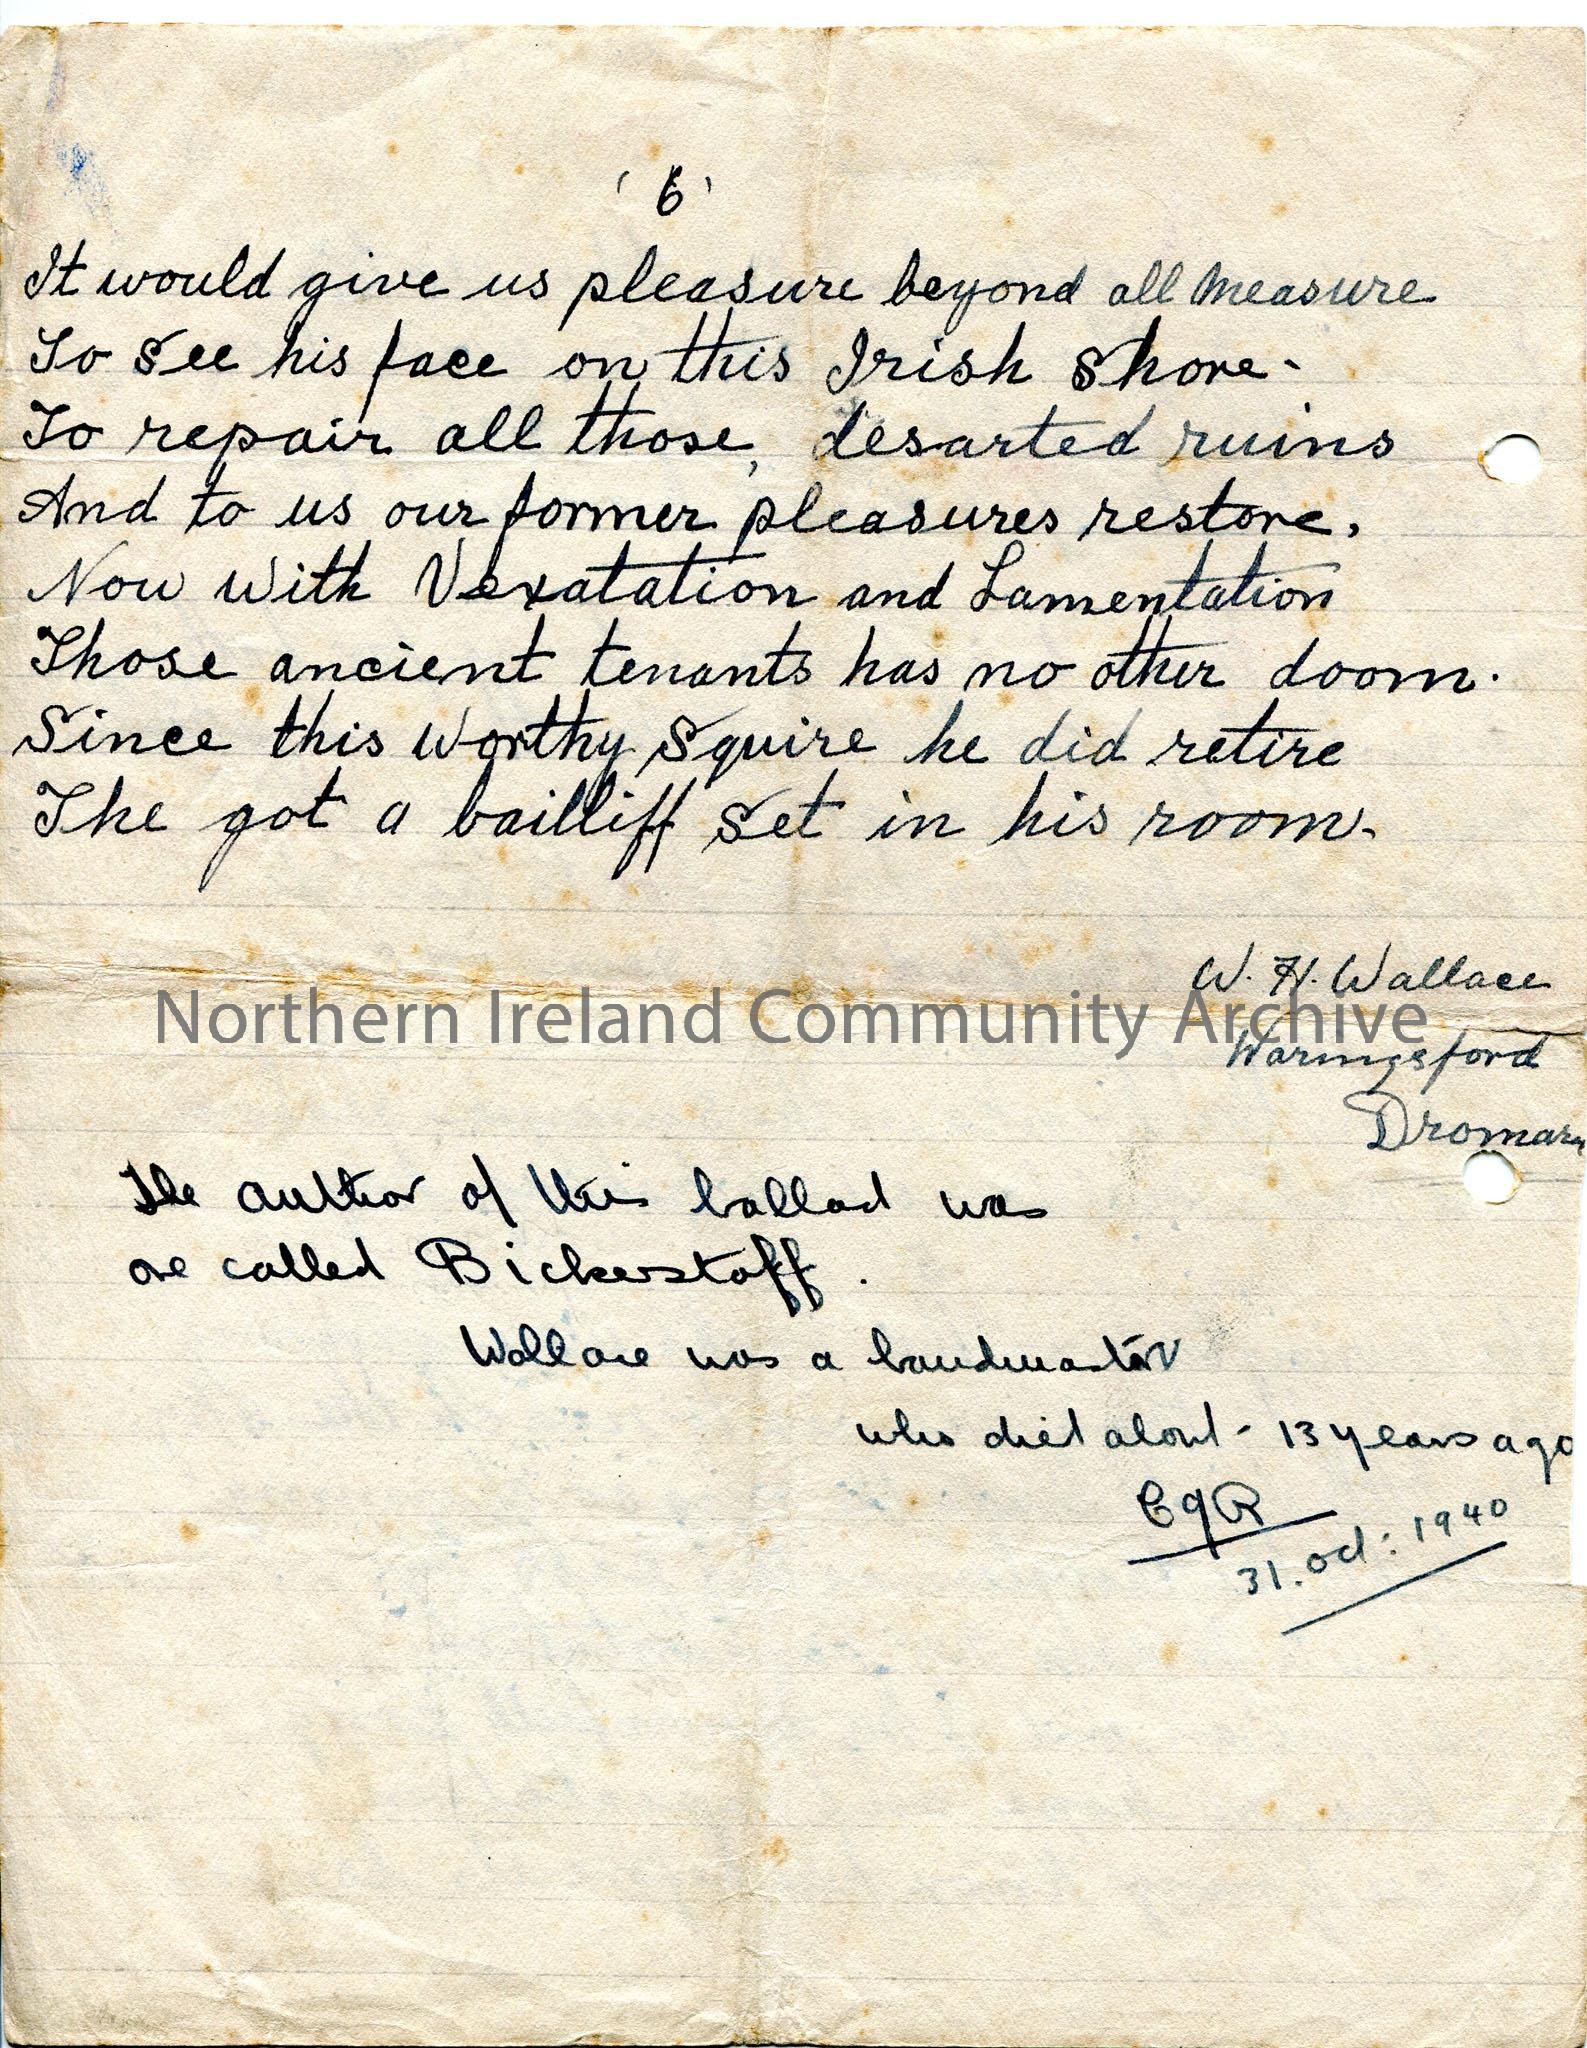 '6'
It would give us pleasure beyond all measure
To see his face on this Irish shore-
To repair all those, desarted ruins
And to us our former pleasures restore,
Now with Vexatation and Lamentation
Those ancient tenants has no other doom.
Since this worthy Squire he did retire
The got a bailliff set in his room.
W. H. Wallace
Northern Ireland Community Archive
Waringsford
Dromara
The author of this ballad was
one called Bickerstaff.
Wallace was a bandmaster
who died about - 13 years ago
31. Oct: 1940